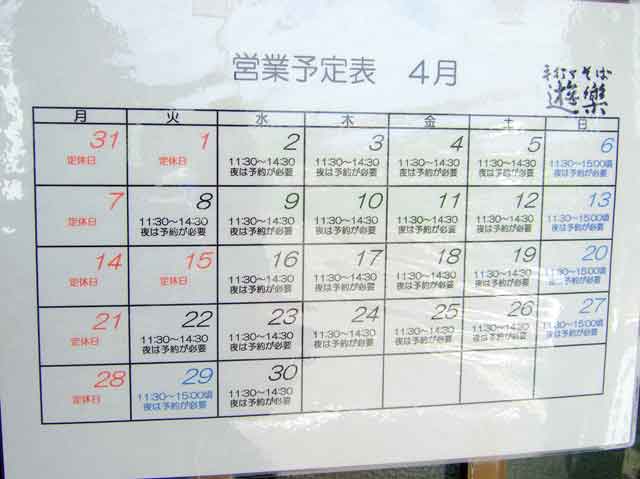 営業予定表 4月
手打ちそば
遊樂
月 火 水 木 金 土 日
31 1 2 3 4 5 6
定休日 定休日 11:30～14:30 11:30～14:30 11:30～14:30 11:30～14:30 11:30～15:00頃
夜は予約が必要 夜は予約が必要 夜は予約が必要 夜は予約が必要 夜は予約が必要
7 8 9 10 11 12 13
定休日 11:30～14:30 11:30～14:30 11:30～14:30 11:30～14:30 11:30～14:30 11:30～15:00頃
夜は予約が必要 夜は予約が必要 夜は予約が必要 夜は予約が必要 夜は予約が必要 夜は予約が必要
14 15 16 17 18 19 20
定休日 定休日 11:30～14:30 11:30～14:30 11:30～14:30 11:30～14:30 11:30～15:00頃
夜は予約が必要 夜は予約が必要 夜は予約が必要 夜は予約が必要 夜は予約が必要
21 22 23 24 25 26 27
定休日 11:30～14:30 11:30～14:30 11:30～14:30 11:30～14:30 11:30～14:30 11:30～15:00頃
夜は予約が必要 夜は予約が必要 夜は予約が必要 夜は予約が必要 夜は予約が必要 夜は予約が必要
28 29 30
定休日 11:30～15:00頃 11:30～14:30
夜は予約が必要 夜は予約が必要